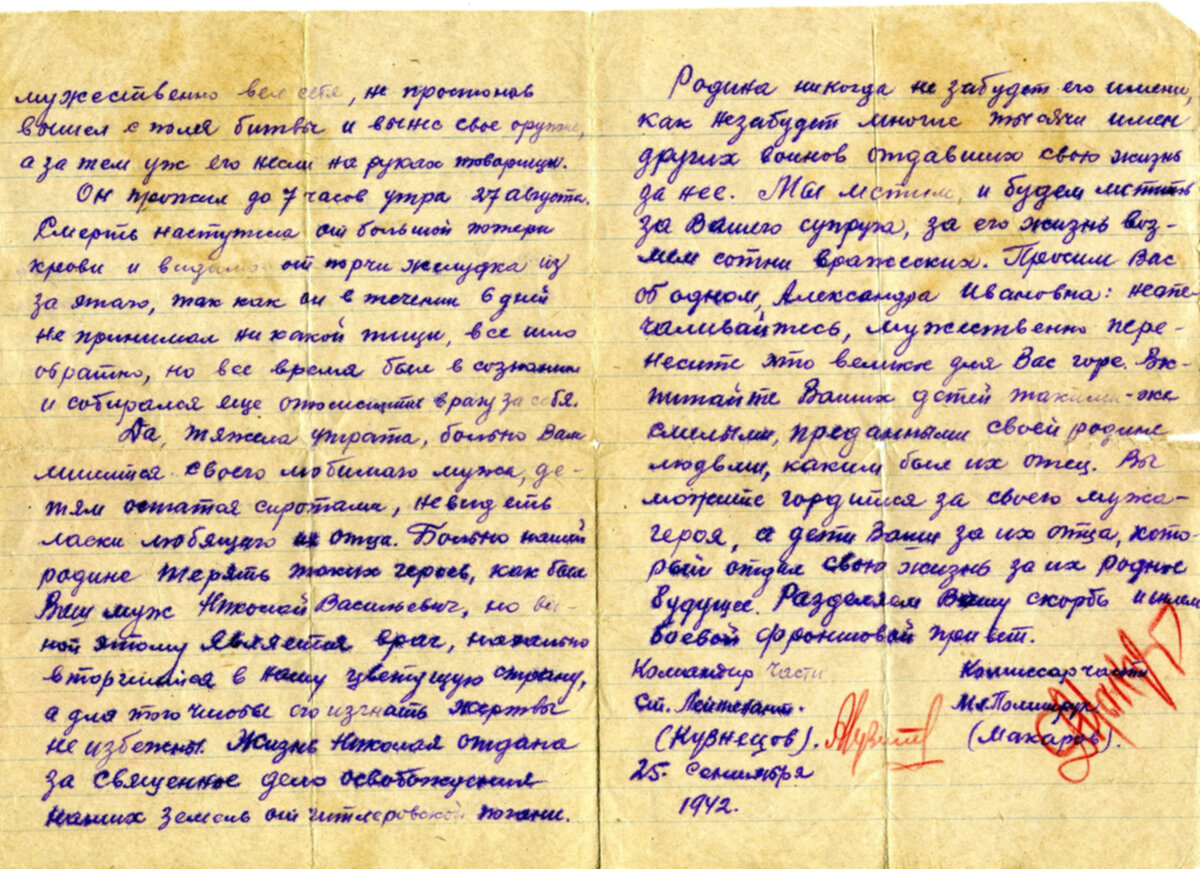 мужественно вел себя, не простонав
вышел с поля битвы и вынс свое оружие,
а за тем уж его несли на руках товарищи.
Он прожил до 7 часов утра 27 августа.
Смерть наступила от большой потери
крови и видимо от порчи желудка из
за этаго, так как он в течении 6 дней
не принимал ни какой пищи, все шло
обратно, но все время был в сознании
и собирался еще отомстить врагу за себя.
Да, тяжела утрата, больно Вам
лишится своего любимаго мужа, де-
тям остатся сиротами, невидеть
ласки любящего их отца. Больно нашей
родине терять таких героев, как был
Ваш муж Николай Васильевич, но ви-
ной этому является враг, нахально
вторгшийся в нашу цветущую страну,
а для того чтобы его изгнать жертвы
не избежны. Жизнь Николая отдана
за священное дело освобождения
наших земель от гитлеровской погани.
Родина никогда не забудет его имени,
как незабудет многие тысячи имен
других воинов отдавших свою жизнь
за нее. Мы мстим и будем мстить
за Вашего супруга, за его жизнь воз-
мем сотни вражеских. Просим Вас
об одном, Александра Ивановна: неопе-
чаливайтесь, мужественно пере-
несите это великое для Вас горе. Вос-
питайте Ваших детей такими-же
смелыми, преданными своей родине
людьми, каким был их отец. Вы
можите гордится за своего мужа-
героя, а дети Ваши за их отца, кото-
рый отдал свою жизнь за их родное
будущее. Разделяем Вашу скорбь и шлем
боевой фронтовой привет.
Командир части
Ст. Лейтенант.
(Кузнецов).
25. сентября
1942.
Комиссар части
Мл. Политрук
(Макаров).